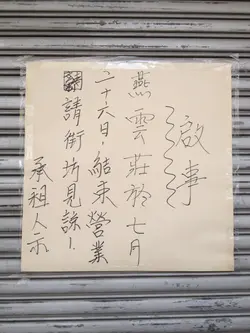 啟事
燕雲莊於七月
二十六日，結束營業
請街坊見諒！
承租人示